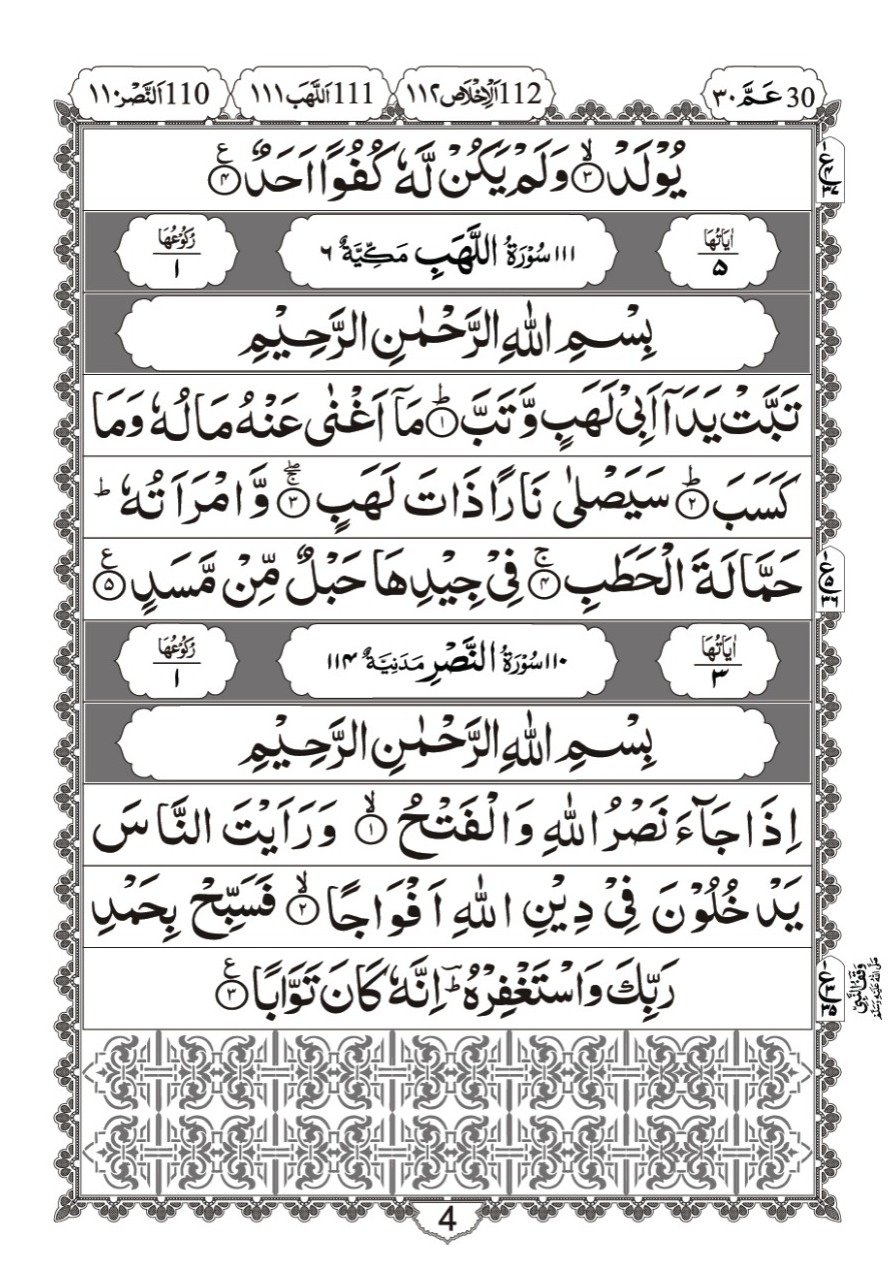 30 عَمَّ ٣٠ 112 اَلْاِخْلَاص ١١٢ 111 اَللَّهَب ١١١ 110 اَلنَّصْر ١١٠
يُوْلَدْ ۙ‏﴿۳﴾ وَلَمْ يَكُنْ لَّهٗ كُفُوًا اَحَدٌ ﴿۴﴾ ع
اٰيَاتُهَا ۵ ١١١ سُوْرَةُ اللَّهَبِ مَكِّيَّةٌ ٦ رُكُوْعُهَا ١
بِسْمِ اللّٰهِ الرَّحْمٰنِ الرَّحِيْمِ
تَبَّتْ يَدَاۤ اَبِىْ لَهَبٍ وَّتَبَّ ؕ‏﴿۱﴾ مَاۤ اَغْنٰى عَنْهُ مَالُهٗ وَمَا
كَسَبَ ؕ‏﴿۲﴾ سَيَصْلٰى نَارًا ذَاتَ لَهَبٍ ۖۚ‏﴿۳﴾ وَّامْرَاَتُهٗ ؕ
حَمَّالَةَ الْحَطَبِ ۚ‏﴿۴﴾ فِىْ جِيْدِهَا حَبْلٌ مِّنْ مَّسَدٍ ﴿۵﴾ ع
اٰيَاتُهَا ٣ ١١٠ سُوْرَةُ النَّصْرِ مَدَنِيَّةٌ ١١۴ رُكُوْعُهَا ١
بِسْمِ اللّٰهِ الرَّحْمٰنِ الرَّحِيْمِ
اِذَا جَآءَ نَصْرُ اللّٰهِ وَالْفَتْحُ ۙ‏﴿۱﴾ وَرَاَيْتَ النَّاسَ
يَدْخُلُوْنَ فِىْ دِيْنِ اللّٰهِ اَفْوَاجًا ۙ‏﴿۲﴾ فَسَبِّحْ بِحَمْدِ
رَبِّكَ وَاسْتَغْفِرْهُ ؕؔ اِنَّهٗ كَانَ تَوَّابًا ﴿۳﴾ ع
وَقْفُ النَّبِىِّ صَلَّى اللّٰهُ عَلَيْهِ وَسَلَّمَ
4